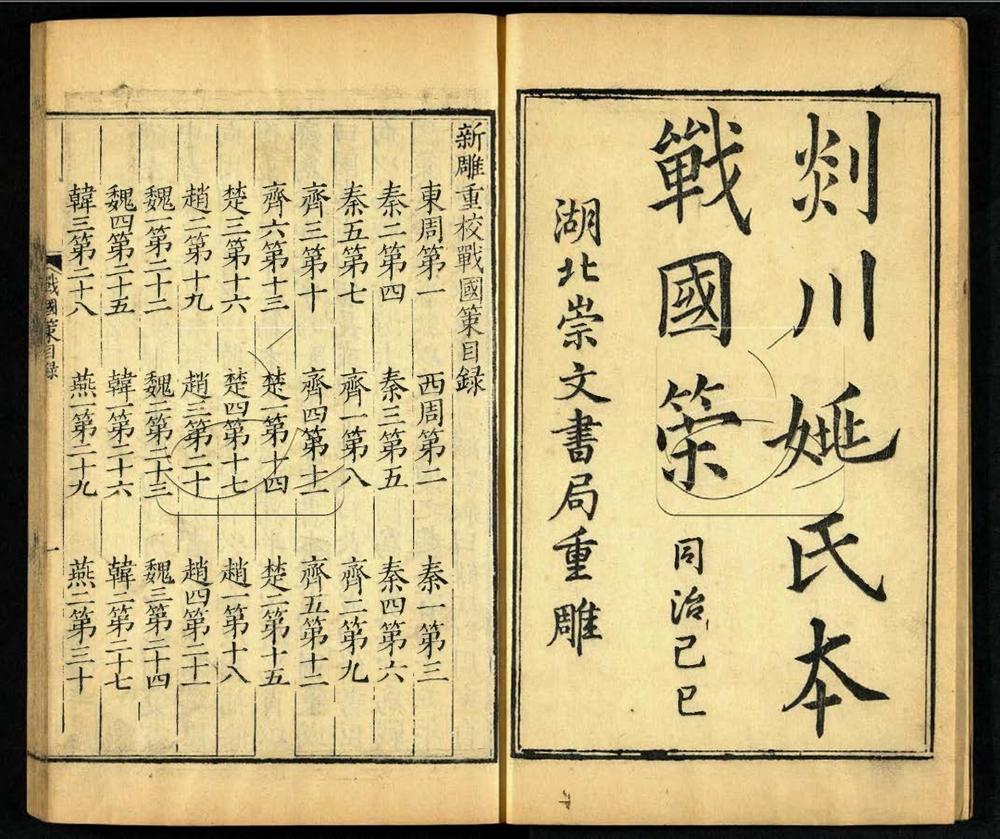 剡川姚氏本
戰國策
同治己巳
湖北崇文書局重雕
新雕重校戰國策目録
東周第一 西周第二 秦一第三
秦二第四 秦三第五 秦四第六
秦五第七 齊一第八 齊二第九
齊三第十 齊四第十一 齊五第十二
齊六第十三 楚一第十四 楚二第十五
楚三第十六 楚四第十七 趙一第十八
趙二第十九 趙三第二十 趙四第二十一
魏一第二十二 魏二第二十三 魏三第二十四
魏四第二十五 韓一第二十六 韓二第二十七
韓三第二十八 燕一第二十九 燕二第三十
戰國策目録
一